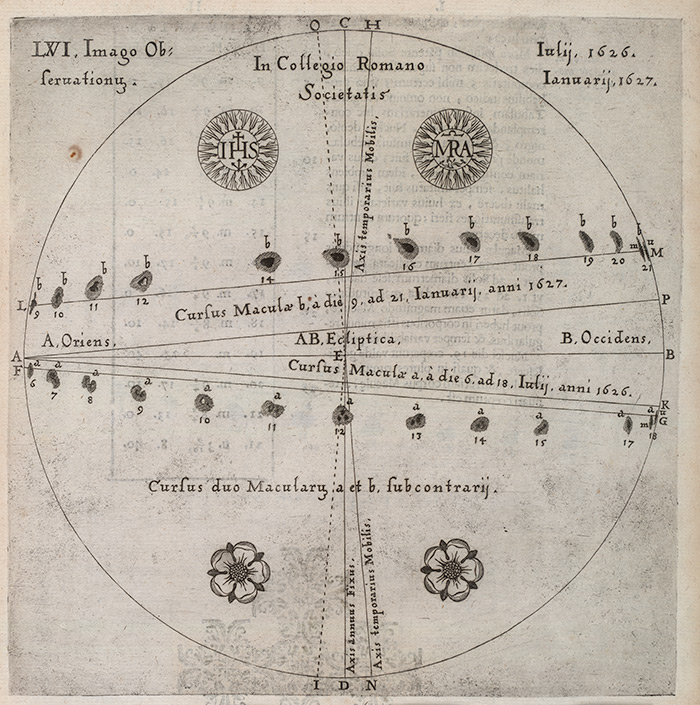 O C H
LVI. Imago Ob:
seruationũ.
In Collegio Romano
Societatis
Iulij, 1626.
Ianuarij, 1627.
IHS
MRA
Axis temporarius Mobilis,
b b b b b b b b b b b b
m n M
L 9 10 11 12 14 15 16 17 18 19 20 21
Cursus Maculæ b, à die 9, ad 21, Ianuarij, anni 1627.
P
A, Oriens. AB, Ecliptica, B, Occidens,
A E B
F Cursus Maculæ a, à die 6, ad 18, Iulij, anni 1626.
K
a a a a a a a a a a a a
m n G
6 7 8 9 10 11 12 13 14 15 17 18
Cursus duo Macularũ a et b, subcontrarij.
Axis annuus Fixus.
Axis temporarius Mobilis,
I D N